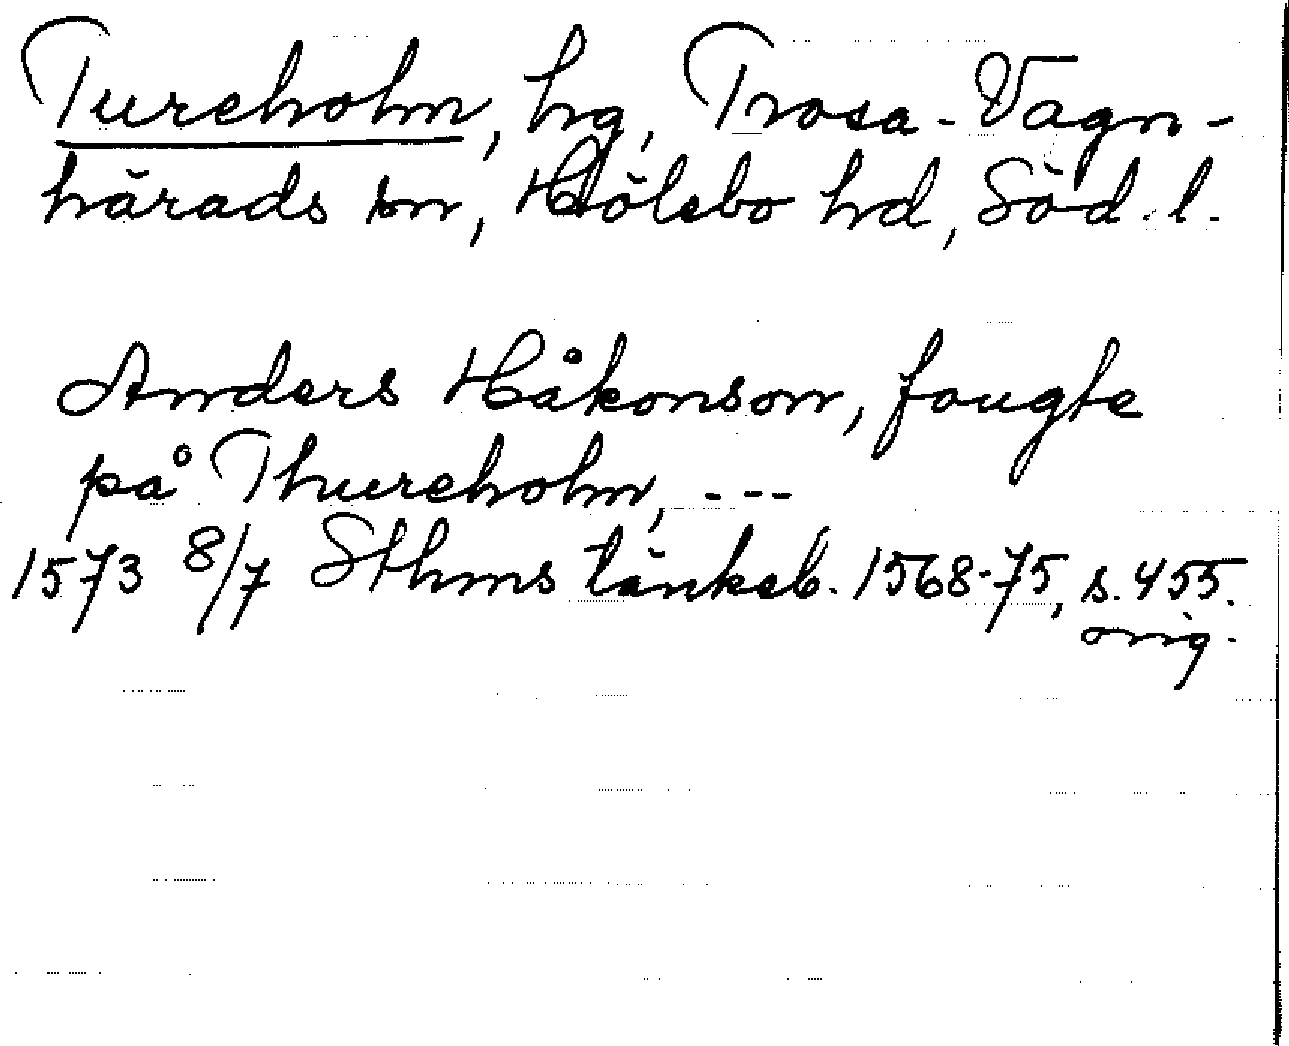 Tureholm, hg, Trosa-Vagn-
härads sn, Hölebo hd, Söd.l.
Anders Håkonson, fougte
på Thureholm, ---
1573 8/7 Sthms tänkeb. 1568-75, s. 455.
orig.